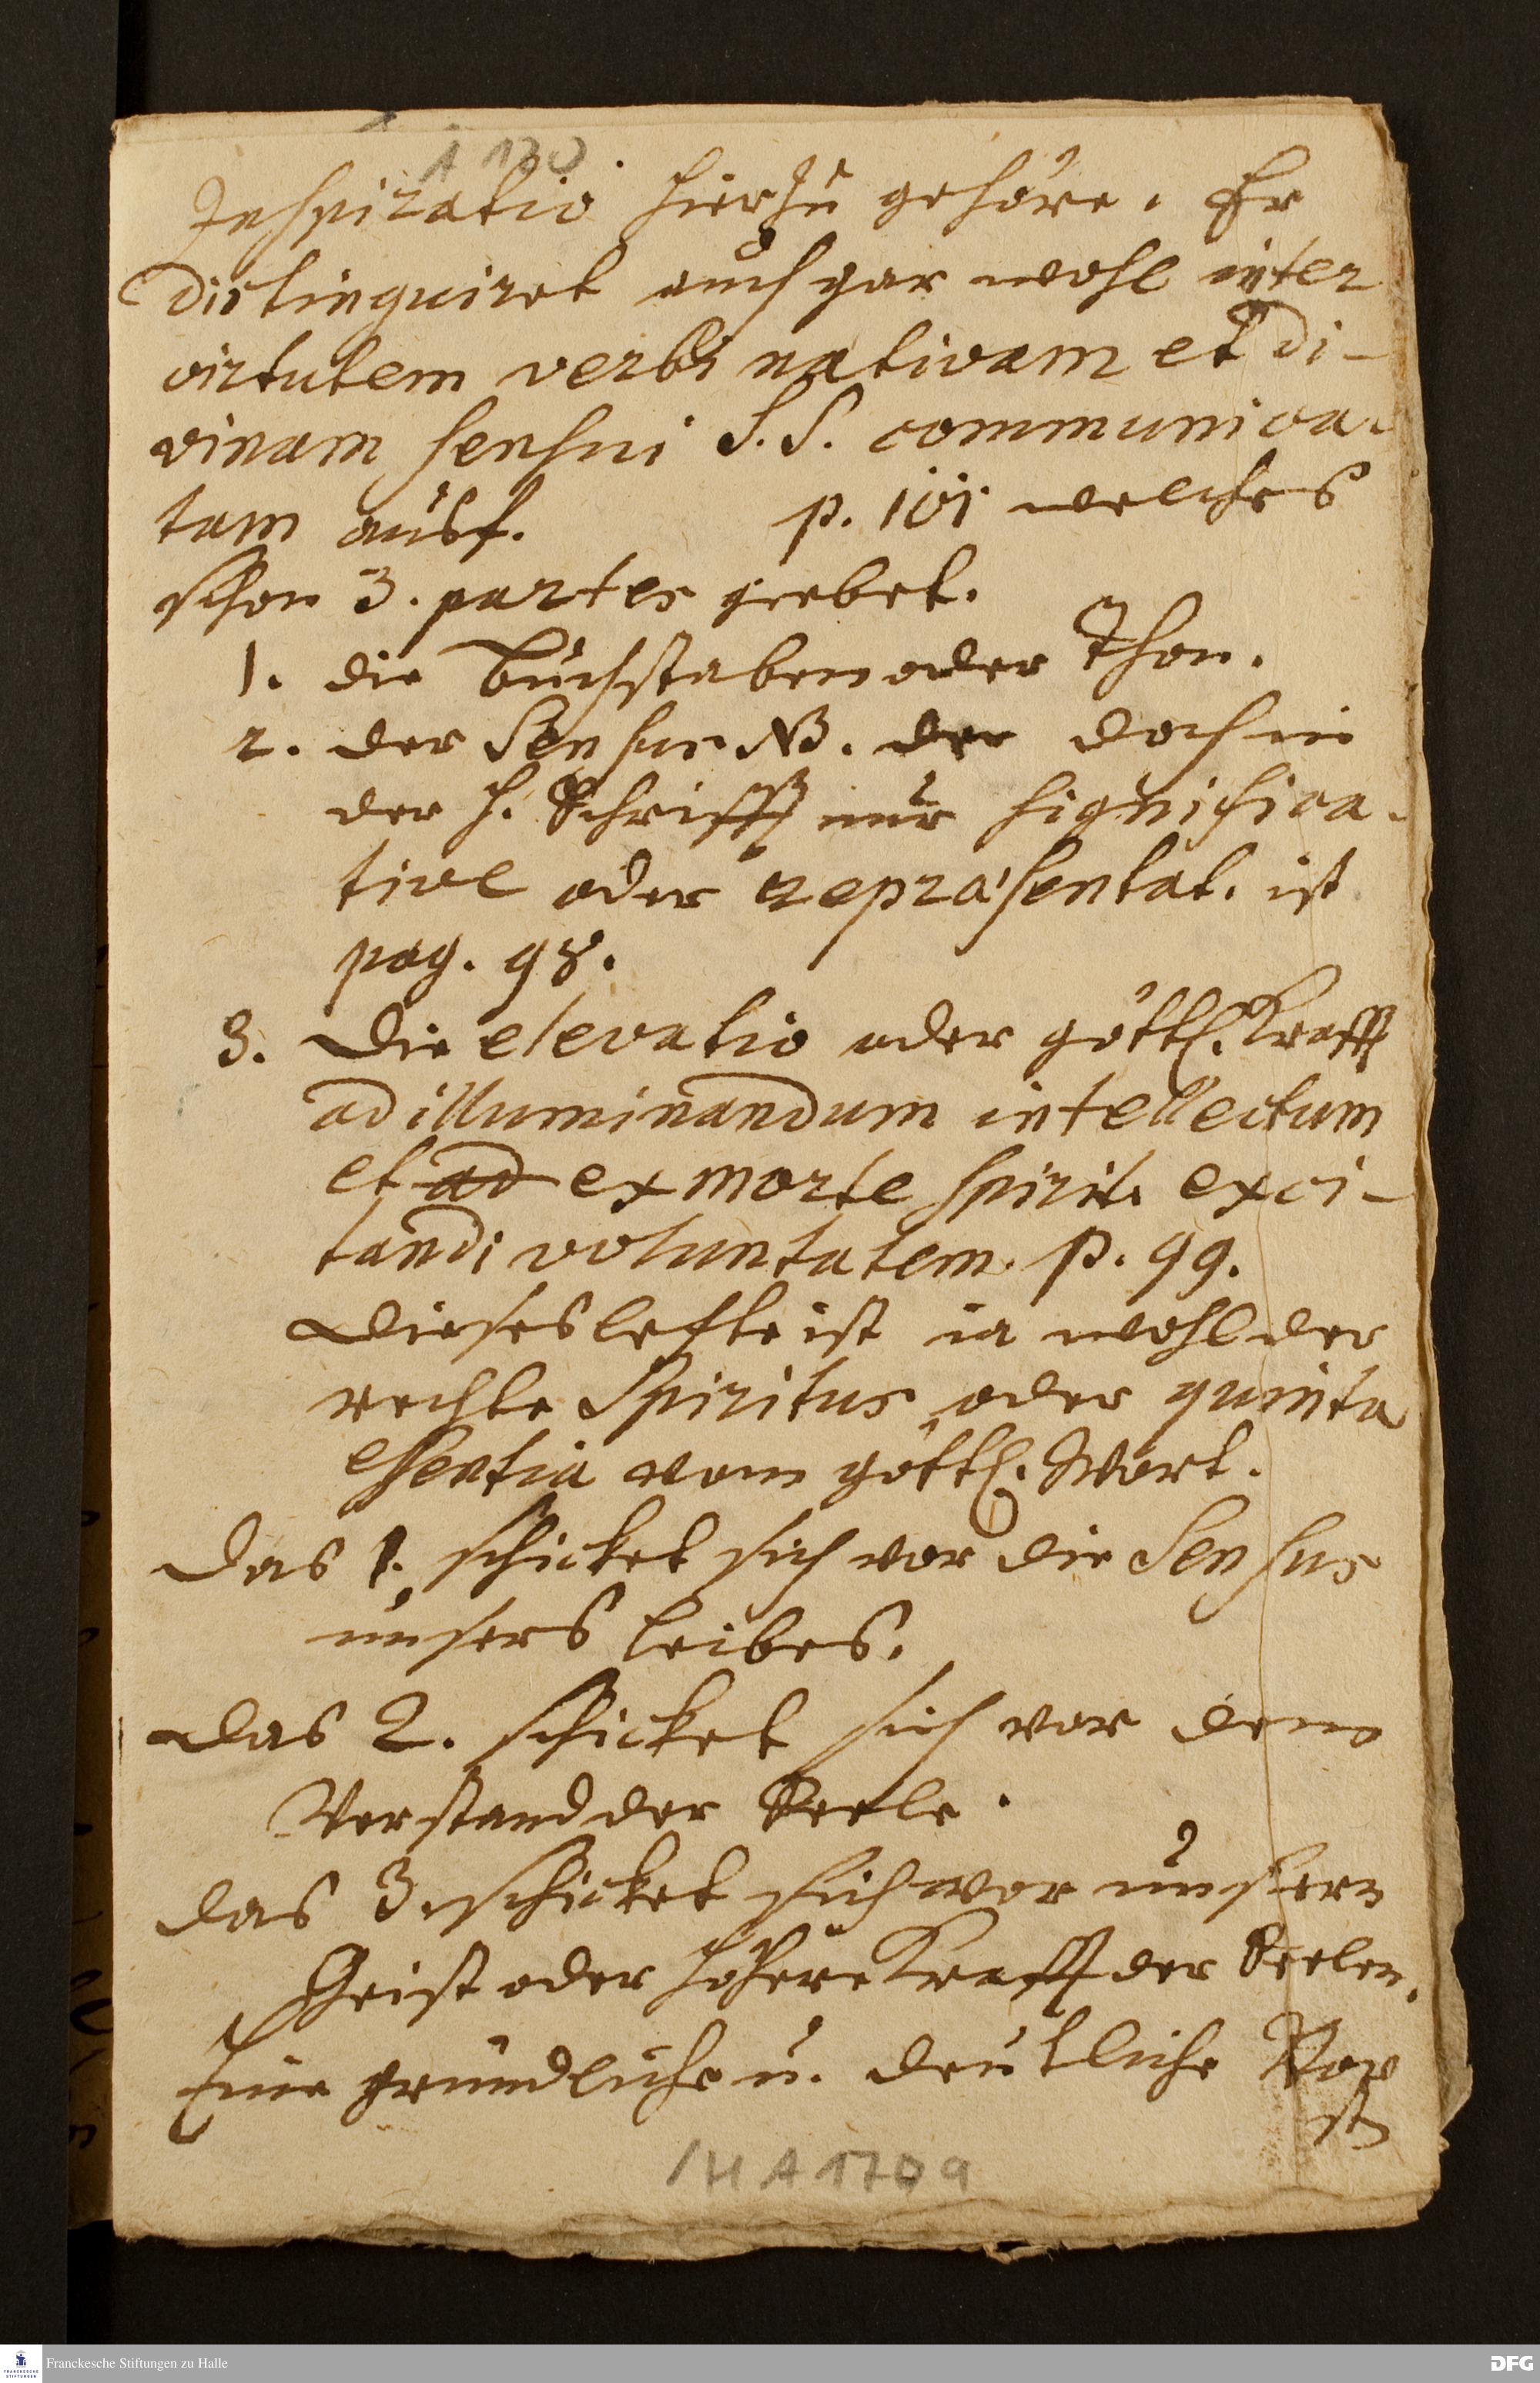 A 170
Inspiratio hierzu gehöre. Er
distinguiret auch gar wohl inter
virtutem verbi nativam et di-
vinam sensui S. S. communica-
tam auß. p. 101. welches
schon 3. partes giebet.
1. die Buchstaben oder Thon.
2. der Sensus NB. der doch in
der H. Schrifft nur significa-
tive oder repræsentat. ist
pag. 98.
3. Die elevatio oder göttl. Krafft
ad illuminandum intellectum
et ad ex morte spirit. exci-
tandi voluntatem. p. 99.
Dieses letzte ist ia wohl der
rechte Spiritus oder quinta
essentia vom göttl. Wort.
Das 1. schicket sich vor die Sensus
unsers leibes.
Das 2. schicket sich vor dem
Verstand der Seele.
Das 3. schicket sich vor unsern
Geist oder höhere Krafft der Seelen.
Eine gründliche u. deutliche Vor
st
/H A 170 9
FRANCKESCHE STIFTUNGEN
Franckesche Stiftungen zu Halle
DFG